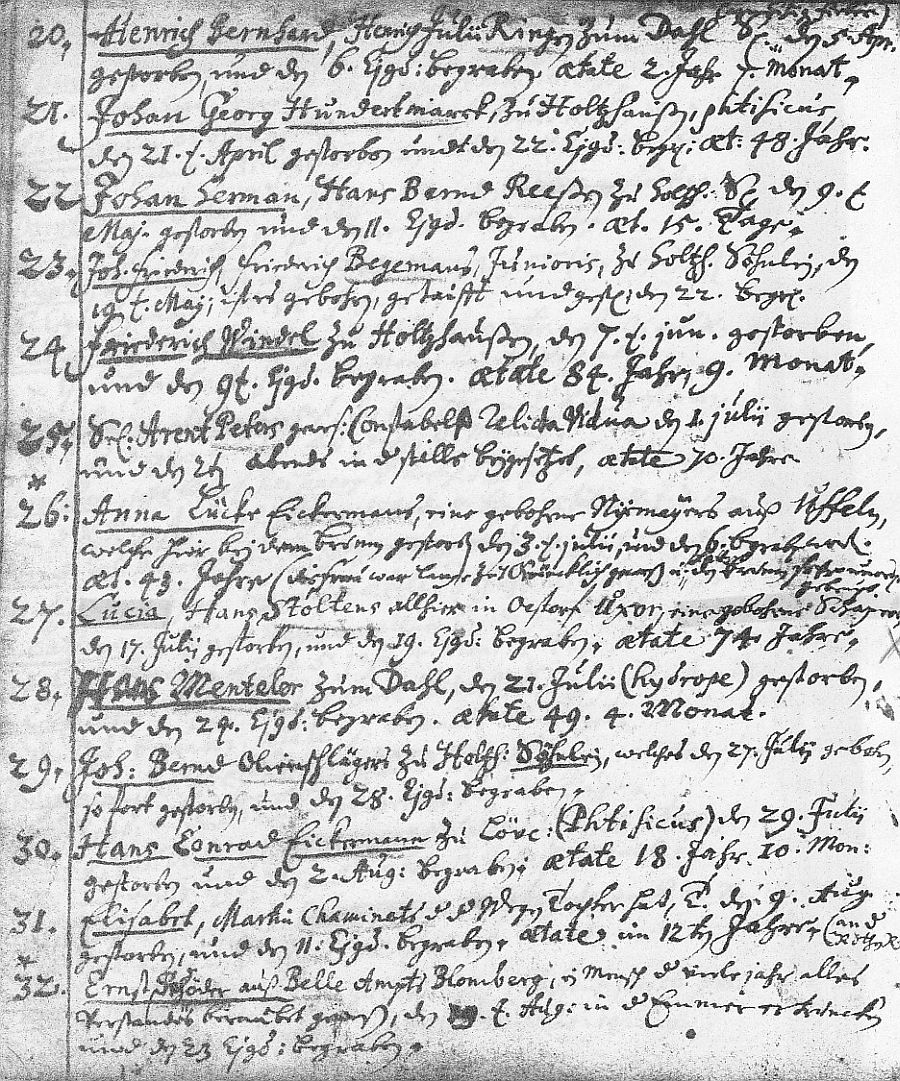 20. Henrich Bernhard, Henrich Julii Ringen zum Dahl S. den 5 Apr.
gestorben, und den 6. Ejsd: begraben. ætate 2. Jahr 7. Monat.
21. Johan Georg Hundertmarck, zu Holtzhaußen, phtisicus,
den 21. April gestorben undt den 22. Ejsd: begr: æt: 48. Jahr.
22 Johan Herman, Hans Bernd Reeßen zu Holtzh. S. den 9.
Maj. gestorben und den 11. Ejsd. begraben. æt. 15. Tage.
23. Joh. Friedrich, Friederich Begemans, Junioris, zu Holtzh. Söhnlein, den
19. Maij, ist es gebohren, getaufft und gest, den 22. begr.
24. Friederich Windel zu Holtzhaußen, den 7. jun. gestorben,
und den 9t. Ejsd. begraben. ætate 84. Jahr, 9. Monat.
25. Sel. Arent Peters gewes: Constabels relicta Vidua den 1. julii gestorben,
und den abends in d stille beygesetzet, ætate 70. Jahre
26. Anna Lücke Eickermans, eine gebohrne Niemayers auß Uffeln,
welche hier bei dem brunn gestorb den 3. julii, und den 6. begraben
æt. 43. Jahre (die frau war lange Zeit
27. Lucia, Hans Stoltens allhier in Oestorf Uxor, eine gebohrne
den 17. Julij gestorben, und den 19. Ejsd: begraben. ætate 74. Jahre.
28. Hans Menteler zum Dahl, den 21. Julii (hydrope) gestorben,
und den 24. Ejsd: begraben. ætate 49. 4. Monat.
29. Joh: Bernd Olienschlägers zu Holtzh: Söhnlein, welches den 27. Julij gebohren,
so fort gestorben, und den 28. Ejsd: begraben.
30. Hans Conrad Eickermann zu Löve: (Phtisicus) den 29. Julii
gestorben und den 2. Aug: begraben; ætate 18. Jahr 10. Mon:
31. Elisabet, Martin Chaminets Tochter den 9. Aug
gestorben, und den 11. Ejsd. begraben, ætate im 12ten Jahre,
32. Ernst auß Belle Ampts Blomberg, ein Mensch d viele jahr alles
Verstandes beraubet geweß, den Aug: in d Emmer ertruncken
und den 23 Ejsd: begraben.